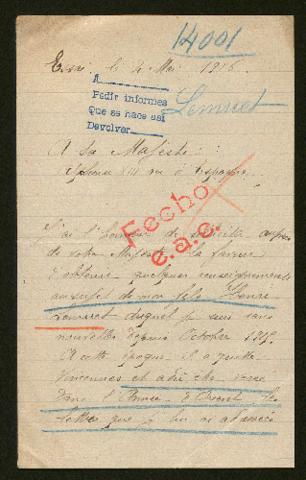 14001
le 4 Mai 1916
A
Pedir informes
Que se hace así
Devolver
Lemuet
A Sa Majesté
Alphonse XIII roi d'Espagne
Fecho
e.a.c.
J'ai l'honneur de
de votre Majesté la faveur
d'obtenir quelques renseignements
au sujet de mon fils Henri
Lemuet duquel je suis sans
nouvelles depuis Octobre 1915.
A cette époque il a quitté
Vincennes et a été
dans l'
lettre que je lui ai adressée